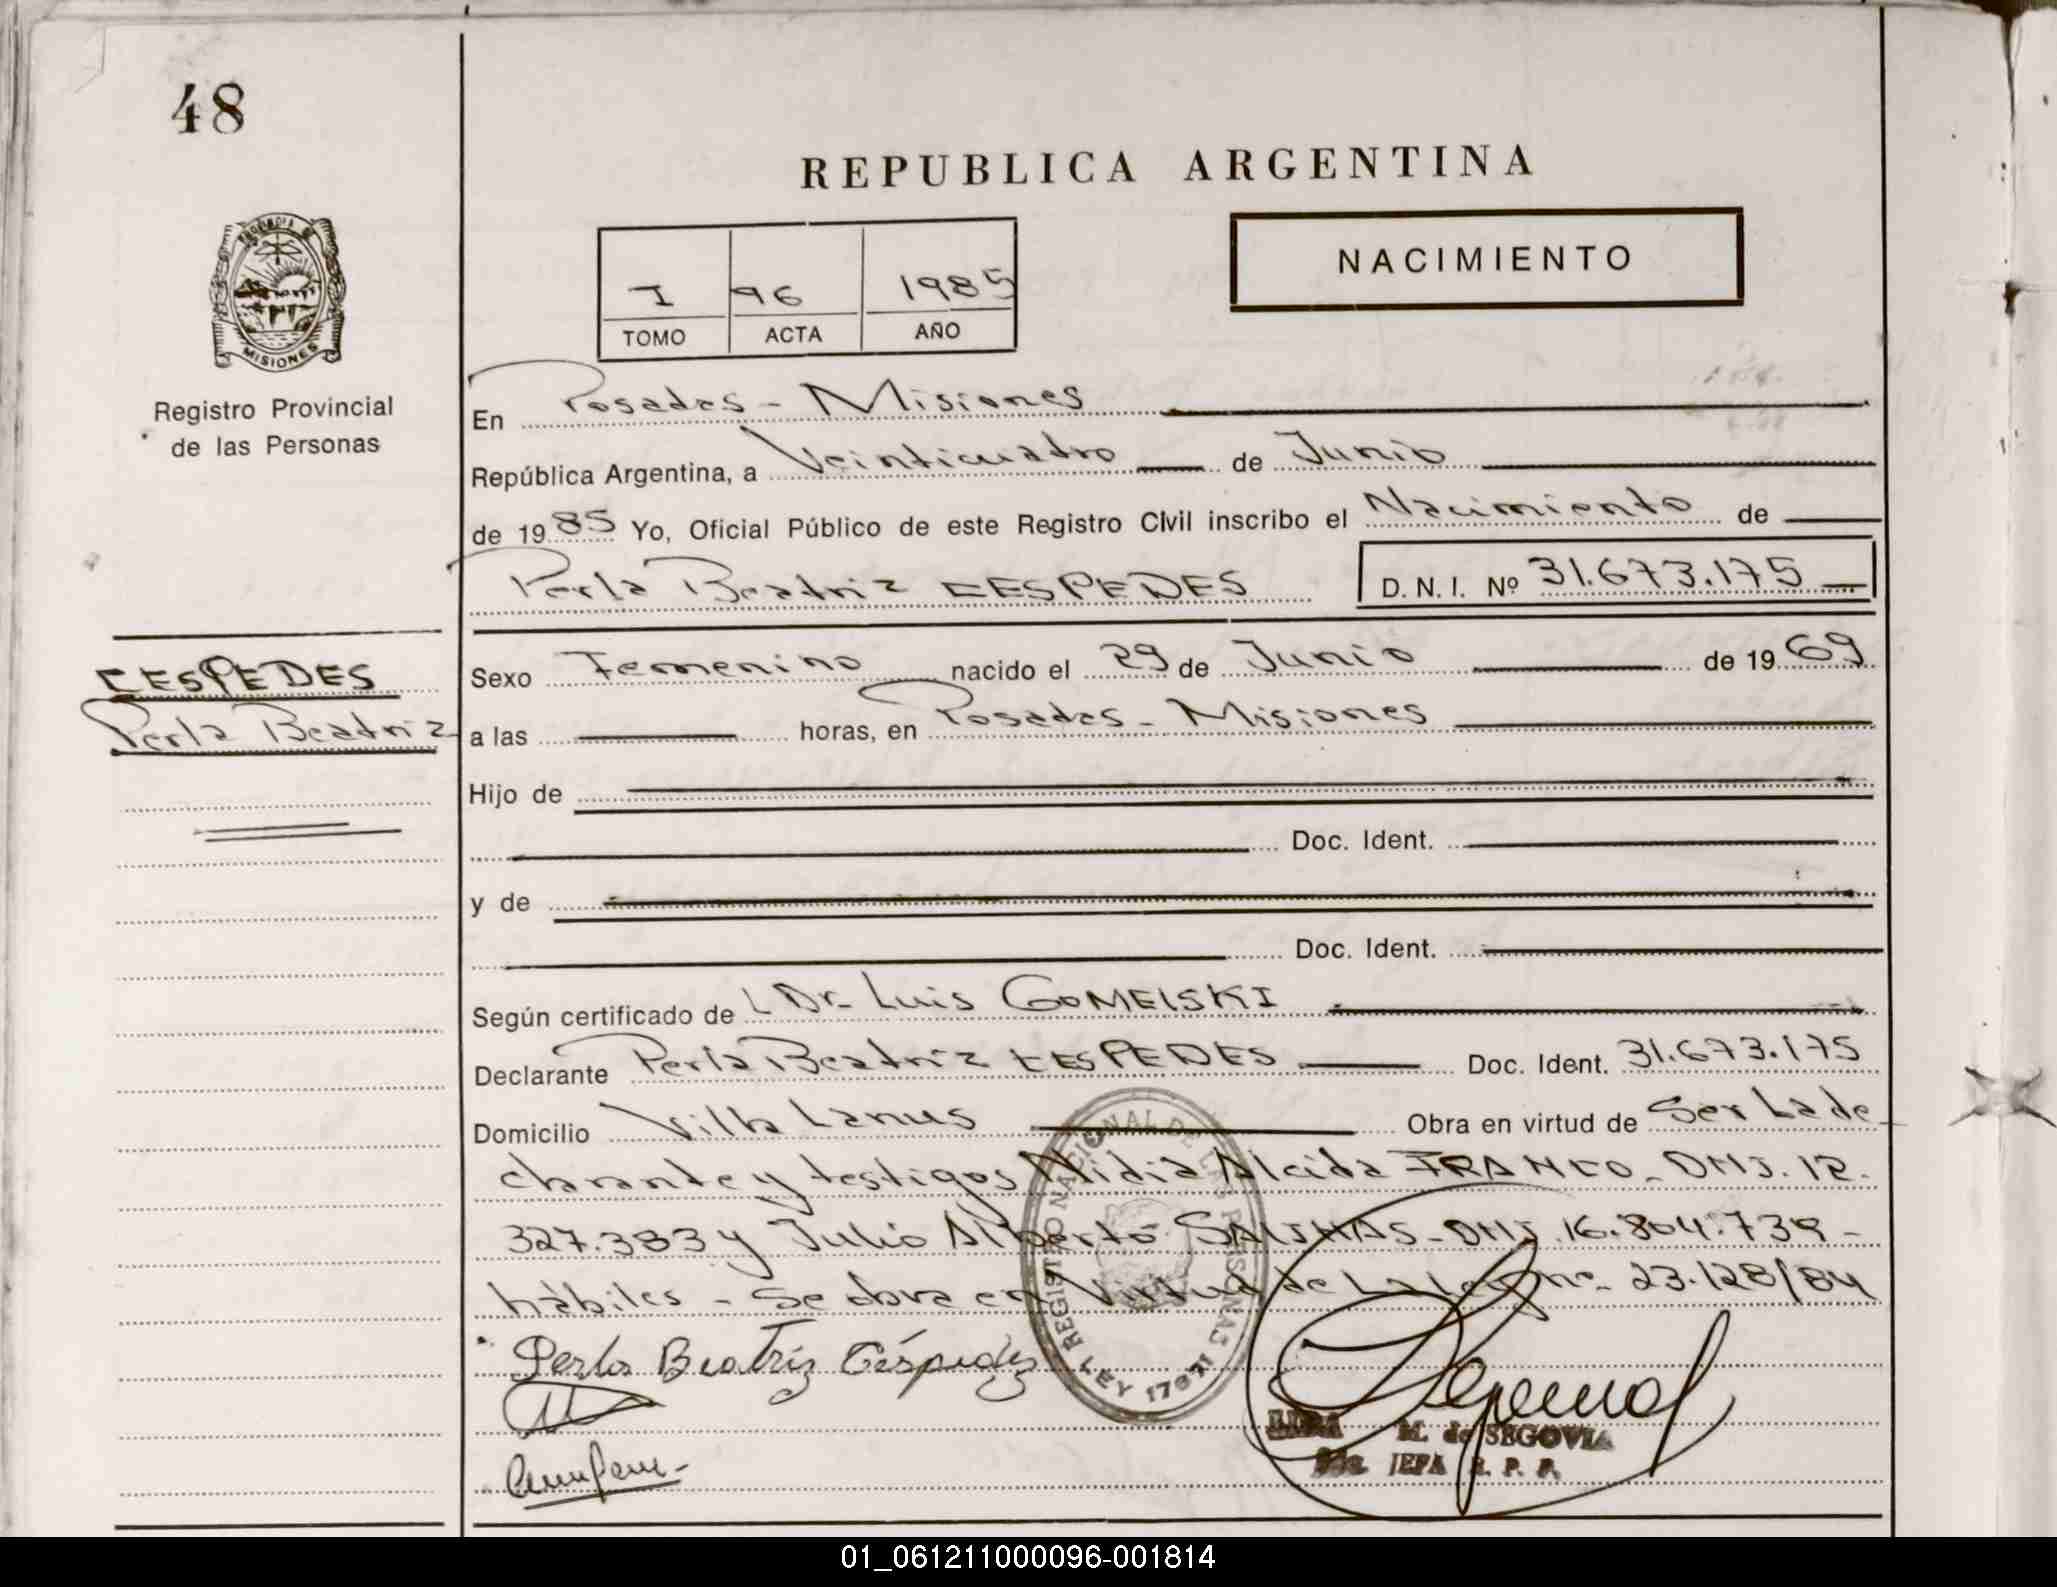 48
REPUBLICA ARGENTINA
NACIMIENTO
I 96 1985
TOMO ACTA AÑO
MISIONES
Registro Provincial
de las Personas
En Posadas - Misiones
República Argentina, a Veinticuatro de Junio
de 1985 Yo, Oficial Público de este Registro Civil inscribo el Nacimiento de
Perla Beatriz CESPEDES D. N. I. Nº 31.673.175
CESPEDES
Perla Beatriz
Sexo Femenino nacido el 29 de Junio de 1969
a las horas, en Posadas - Misiones
Hijo de
Doc. Ident.
y de
Doc. Ident.
Según certificado de Dr. Luis GOMELSKI
Declarante Perla Beatriz CESPEDES Doc. Ident. 31.673.175
Domicilio Villa Lanus Obra en virtud de Ser La de
clarante y testigos Nidia Alcida FRANCO - DNI. 12.
327.383 y Julio Alberto SALINAS - DNI. 16.804.739 -
hábiles - Se obra en Virtud de La Ley nº 23.128/84
Perla Beatriz Céspedes
REGISTRO NACIONAL DE LAS PERSONAS
LEY 17671
M. de SEGOVIA
JEFA R. P. P.
01_061211000096-001814